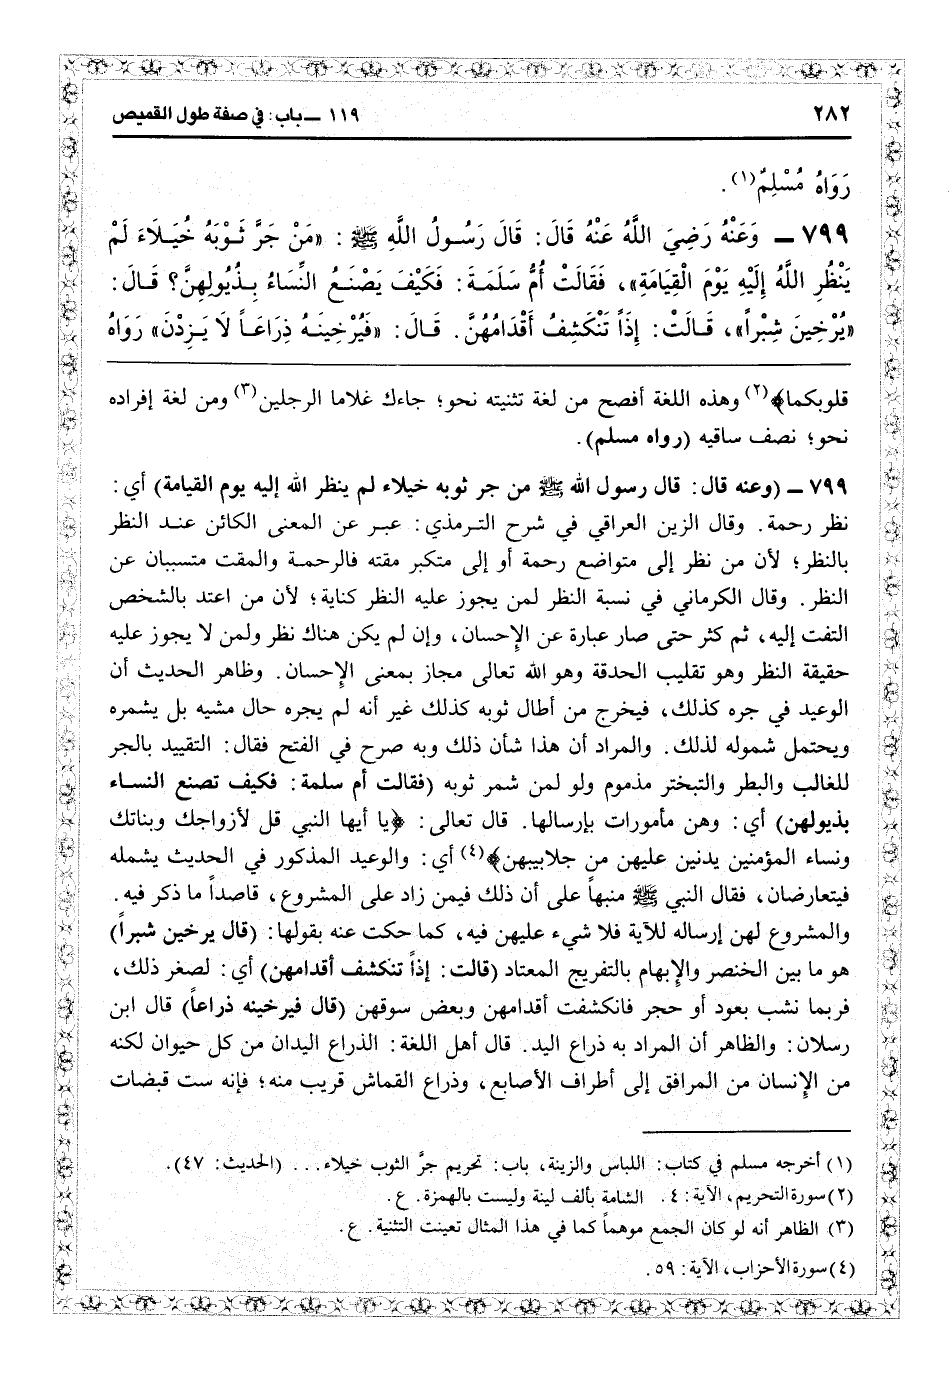 ٢٨٢ ١١٩ ــ باب: في صفة طول القميص
رَوَاهُ مُسْلِمٌ(١).
٧٩٩ ــ وَعَنْهُ رَضِيَ اللَّهُ عَنْهُ قَالَ: قَالَ رَسُولُ اللَّهِ ﷺ: «مَنْ جَرَّ ثَوْبَهُ خُيَلَاءَ لَمْ
يَنْظُرِ اللَّهُ إِلَيْهِ يَوْمَ الْقِيَامَةِ»، فَقَالَتْ أُمُّ سَلَمَةَ: فَكَيْفَ يَصْنَعُ النِّسَاءُ بِذُيُولِهِنَّ؟ قَالَ:
«يُرْخِينَ شِبْراً»، قَالَتْ: إِذَاً تَنْكَشِفُ أَقْدَامُهُنَّ. قَالَ: «فَيُرْخِينَهُ ذِرَاعَاً لَا يَزِدْنَ» رَوَاهُ
قلوبكما﴾(٢) وهذه اللغة أفصح من لغة تثنيته نحو؛ جاءك غلاما الرجلين(٣) ومن لغة إفراده
نحو؛ نصف ساقيه (رواه مسلم).
٧٩٩ ــ (وعنه قال: قال رسول الله ﷺ من جر ثوبه خيلاء لم ينظر الله إليه يوم القيامة) أي:
نظر رحمة. وقال الزين العراقي في شرح الترمذي: عبر عن المعنى الكائن عند النظر
بالنظر؛ لأن من نظر إلى متواضع رحمة أو إلى متكبر مقته فالرحمة والمقت متسببان عن
النظر. وقال الكرماني في نسبة النظر لمن يجوز عليه النظر كناية؛ لأن من اعتد بالشخص
التفت إليه، ثم كثر حتى صار عبارة عن الإحسان، وإن لم يكن هناك نظر ولمن لا يجوز عليه
حقيقة النظر وهو تقليب الحدقة وهو الله تعالى مجاز بمعنى الإحسان. وظاهر الحديث أن
الوعيد في جره كذلك، فيخرج من أطال ثوبه كذلك غير أنه لم يجره حال مشيه بل يشمره
ويحتمل شموله لذلك. والمراد أن هذا شأن ذلك وبه صرح في الفتح فقال: التقييد بالجر
للغالب والبطر والتبختر مذموم ولو لمن شمر ثوبه (فقالت أم سلمة: فكيف تصنع النساء
بذيولهن) أي: وهن مأمورات بإرسالها. قال تعالى: ﴿يا أيها النبي قل لأزواجك وبناتك
ونساء المؤمنين يدنين عليهن من جلابيبهن﴾(٤) أي: والوعيد المذكور في الحديث يشمله
فيتعارضان، فقال النبي ﷺ منبهاً على أن ذلك فيمن زاد على المشروع، قاصداً ما ذكر فيه.
والمشروع لهن إرساله للآية فلا شيء عليهن فيه، كما حكت عنه بقولها: (قال يرخين شبراً)
هو ما بين الخنصر والإبهام بالتفريج المعتاد (قالت: إذاً تنكشف أقدامهن) أي: لصغر ذلك،
فربما نشب بعود أو حجر فانكشفت أقدامهن وبعض سوقهن (قال فيرخينه ذراعاً) قال ابن
رسلان: والظاهر أن المراد به ذراع اليد. قال أهل اللغة: الذراع اليدان من كل حيوان لكنه
من الإنسان من المرافق إلى أطراف الأصابع، وذراع القماش قريب منه؛ فإنه ست قبضات
(١) أخرجه مسلم في كتاب: اللباس والزينة، باب: تحريم جرّ الثوب خيلاء... (الحديث: ٤٧).
(٢) سورة التحريم، الآية: ٤. الشامة بألف لينة وليست بالهمزة. ع.
(٣) الظاهر أنه لو كان الجمع موهماً كما في هذا المثال تعينت التثنية. ع.
(٤) سورة الأحزاب، الآية: ٥٩.